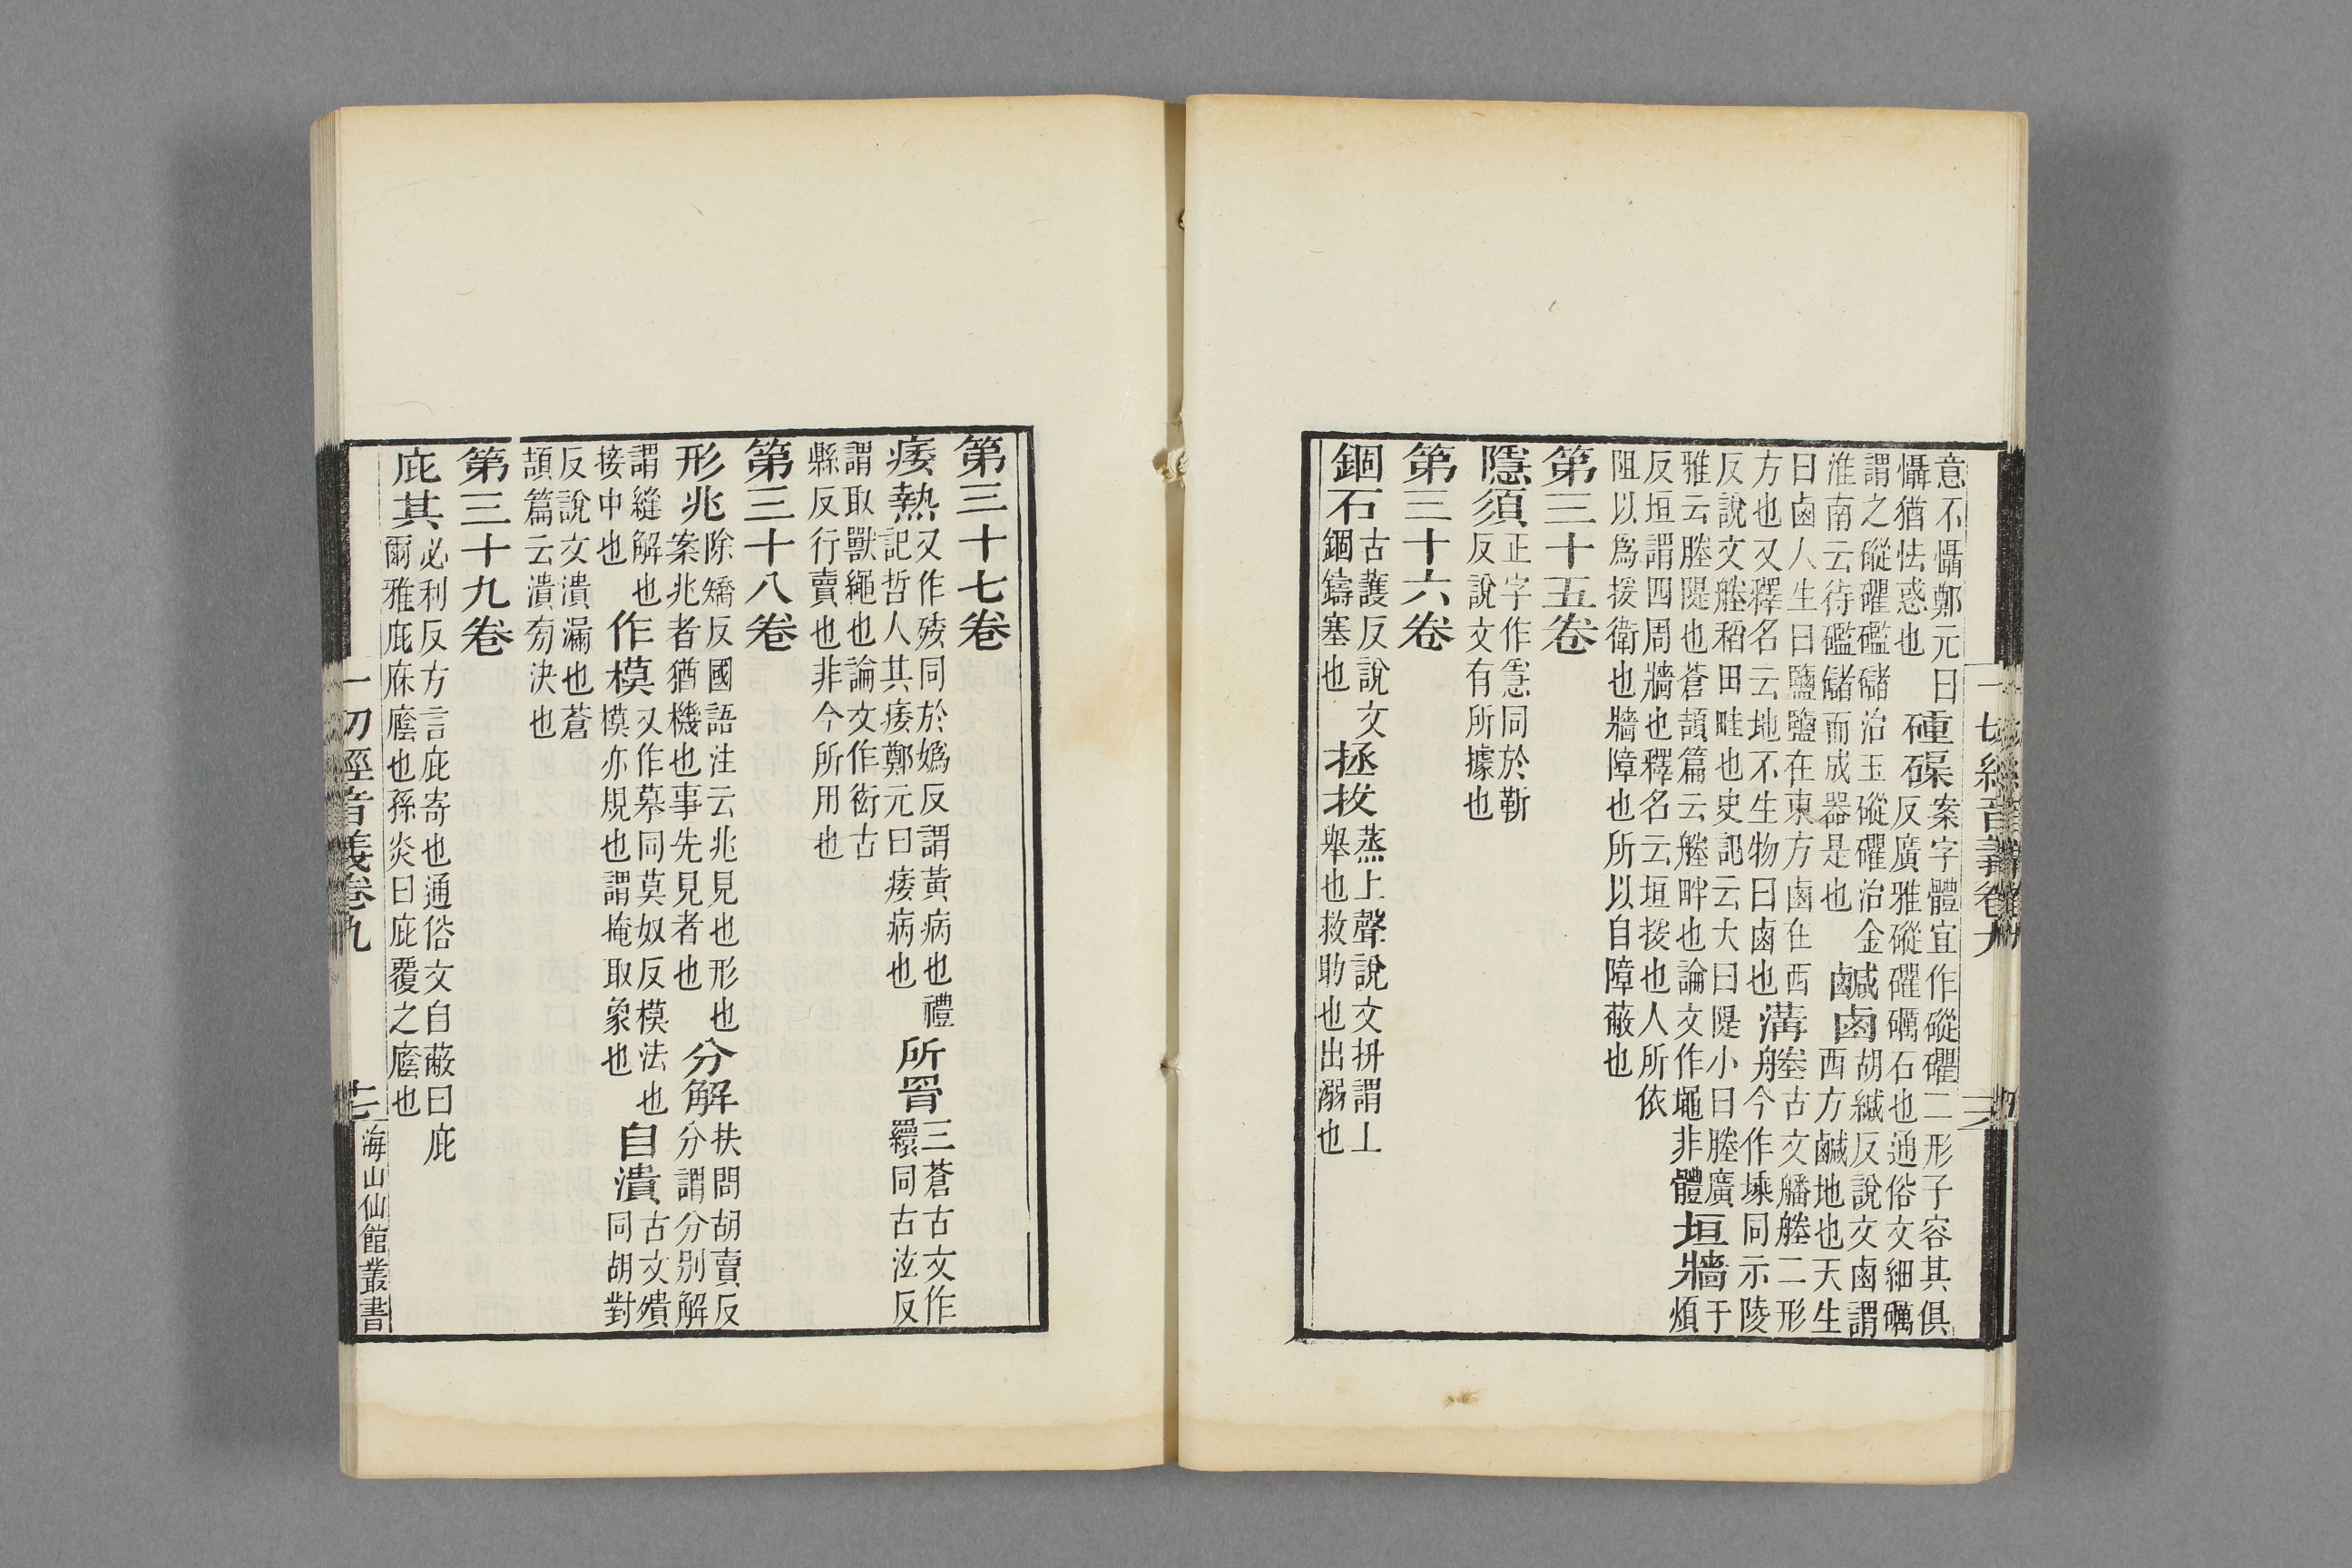 意不懾鄭元曰懾猶怯惑也硾磲案字體宜作磫䂂二形子容其俱反廣雅磫䂂礪石也通俗文細礪
謂之磫䂂礛䃴治玉磫䂂治金淮南云待礛䃴而成器是也鹹鹵胡緘反說文鹵謂西方鹹地也天生
曰鹵人生曰鹽鹽在東方鹵在西方也又釋名云地不生物曰鹵也溝塍古文二形今作堘同示陵
反說文塍稻田畦也史記云大曰隄小曰塍廣雅云塍隄也蒼頡篇云塍畔也論文作非體垣牆于煩
反垣謂四周牆也釋名云垣援也人所依阻以爲援衛也牆障也所以自障蔽也
第三十五卷
隱須正字作㥯同於靳反說文有所據也
第三十六卷
錮石古護反說文錮鑄塞也拯拔蒸上聲說文拼謂上舉也救助也出溺也
一切經音義卷九
第三十七卷
痿熱又作㾯同於嬀反謂黃病也禮記哲人其痿鄭元曰痿病也所罥三蒼古文作䍞同古泫反
謂取獸繩也論文作衒古縣反行賣也非今所用也
第三十八卷
形兆除矯反國語注云兆見也形也案兆者猶機也事先見者也分解扶問胡賣反分謂分別解
謂縫解也接中也作模又作摹同莫奴反模法也模亦規也謂掩取象也自潰古文殨同胡對
反說文潰漏也蒼頡篇云潰旁決也
第三十九卷
庇其必利反方言庇寄也通俗文自蔽曰庇爾雅庇庥廕也孫炎曰庇覆之廕也
一切經音義卷九
七
海山仙館叢書